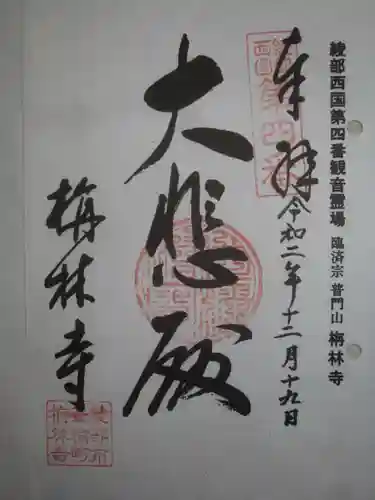 綾部西国第四番観音霊場 臨済宗 普門山 栴林寺
奉拝
令和二年十二月十九日
大悲殿
栴林寺